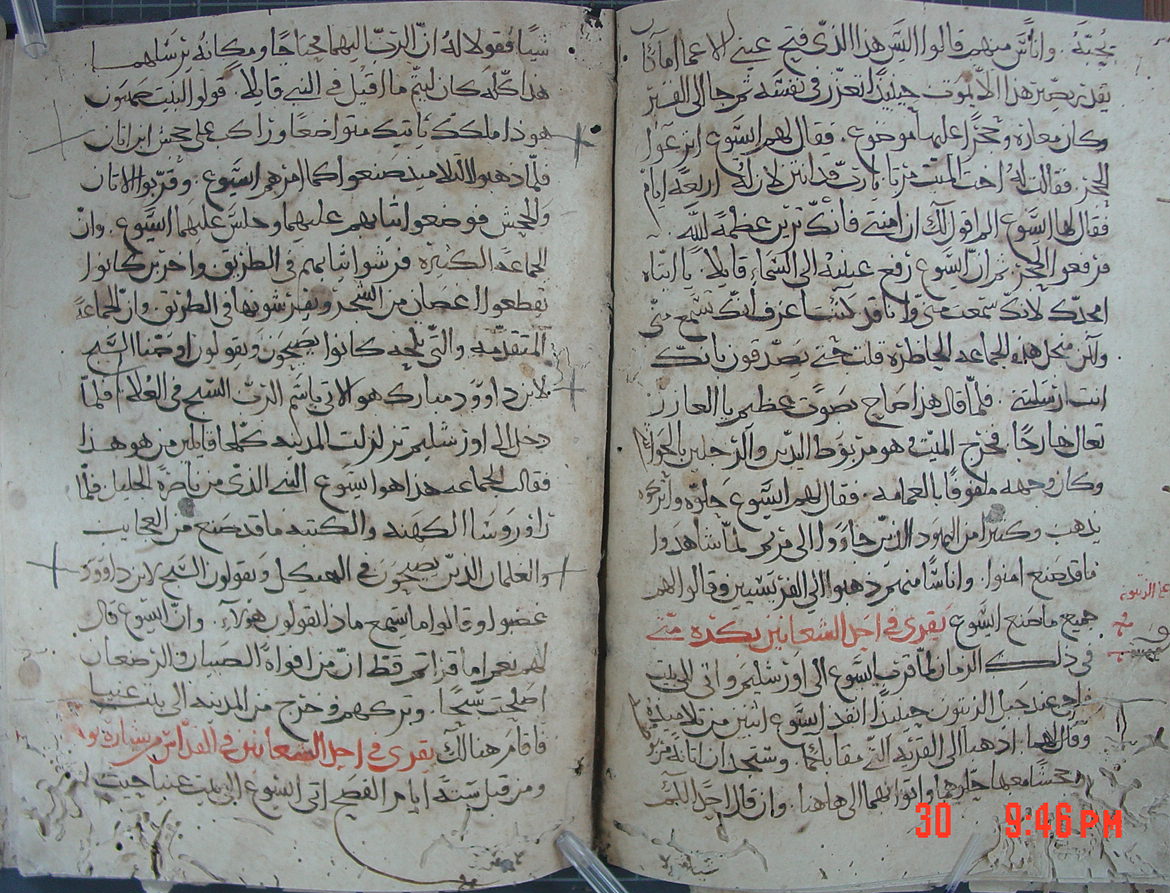 يحبّه. واناسٌ منهم قالوا اليس هذا الذي فتح عيني الاعما اما كان
يقدر يصير هذا الا يموت حينيذًا تعزز في نفسه ثم جا الى القبر
وكان مغاره وحجرًا عليها موضوع. فقال لهم ايسوع ارفعوا
الحجر. فقالت له اخت الميت مرتا يا رب قد انتن لان له اربعة ايام
فقال لها ايسوع الم اقول لك ان امنتي فانك ترين عظمة لله.
فرفعوا الحجر ثم ان ايسوع رفع عينيه الى السماء قايلاً. يا ابتاه
امجدك لانك سمعت منّي وانا قد كنت اعرف انك تسمع منّي
ولكن من اجل هذه الجماعه الحاظره قلت حتى يصدقون بانّك
انت ارسلتني. فلمّا قال هذا صاح بصوت عظيم يا العازر
تعال خارجًا. فخرج الميت وهو مربوط اليدين والرجلين
وكان وجهه ملفوفًا بالعمامه. فقال لهم ايسوع حلوه واتركوه
يذهب وكثيرًا من اليهود الذين جاووا الى مريم لمّا شاهدوا
ما قد صنع امنوا. واناسًا منهم ذهبوا الى الفريسيين وقالوا لهم
جميع ما صنع ايسوع يقرى في احد الشعانين بكره متّى
في ذلك الزمان لمّا قرب ايسوع الى اورشليم واتى الى بيت
فاجي عند جبل الزيتون حينيذًا انفد ايسوع اثنين من تلاميذه
وقال لهما. اذهبا الى القريه التي مقابلكما. وستجدان اتانه مربوطه
وجحشًا معها حلوهما واتوني بهما الى هاهنا. وان قال احدًا لكم
شيًا فقولا له ان الرب اليهما محتاجًا ومكانه يرسلهما
هذا كلّه كان ليتمّ ما اقيل في النبي قايلاً. قولوا لابنت صهيون
هوذا ملكك ياتيك متواضعًا وراكب على جحش ابن اتان
فلمّا ذهبوا التلاميذ صنعوا كما امرهم ايسوع. وقرّبوا الاتان
والجحش فوضعوا ثيابهم عليهما وجلس عليهما ايسوع. وانّ
الجماعه الكثيره فرشوا ثيابهم في الطريق واخرين كانوا
يقطعوا اغصان من الشجر ويفرشونها في الطريق. وان الجماعة
المتقدمه والتي تلحقه كانوا يصيحون ويقولون اوصنا السبح
لابن داوود مبارك هو الاتي باسم الرب السبح في العُلا. فلمّا
دخل الى اورشليم تزلزلت المدينه كلّها قايلين من هو هذا
فقالت الجماعه هذا هوا ايسوع النبي الذي من ناصرة الجليل. فلمّا
راو روسا الكهنه والكتبه ما قد صنع من العجايب
والغلمان الذين يصيحون في الهيكل ويقولون السبح لابن داوود
غضبوا وقالوا ما تسمع ماذا يقولون هولاء. وان ايسوع قال
لهم نعم اما قراتم قط انّ من افواه الصبيان والرضعان
اصلحت سبحًا. وتركهم وخرج من المدينه الى بيت عنيا
فاقام هنالك يقرى في احد الشعانين في القداس من بشارة يوحنا
ومن قبل ستة ايام الفصح اتى ايسوع الى بيت عنيا حيث
30 9:46 PM